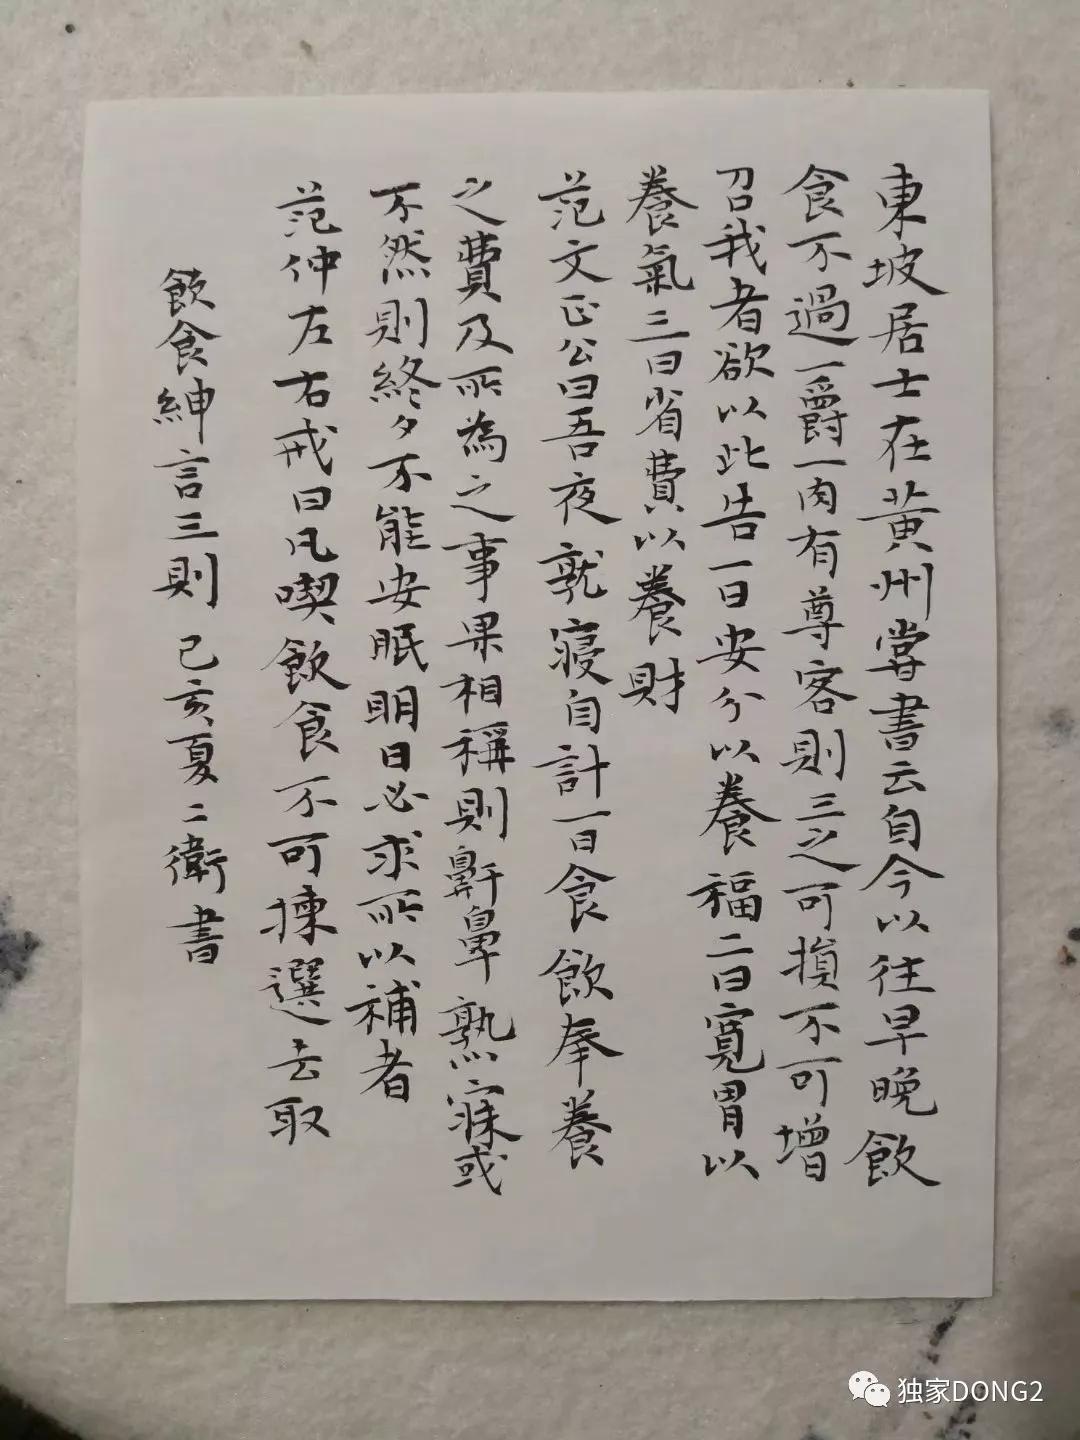 東坡居士在黄州嘗書云自今以往早晚飲
食不過一爵一肉有尊客則三之可損不可增
召我者欲以此告一曰安分以養福二曰寬胃以
養氣三曰省費以養財
范文正公曰吾夜就寝自計一日食飲奉養
之費及所為之事果相稱則鼾鼻熟寐或
不然則終夕不能安眠明日必求所以補者
范仲左右戒曰凡喫飲食不可揀選去取
飲食紳言三則 己亥夏二衛書
独家DONG2